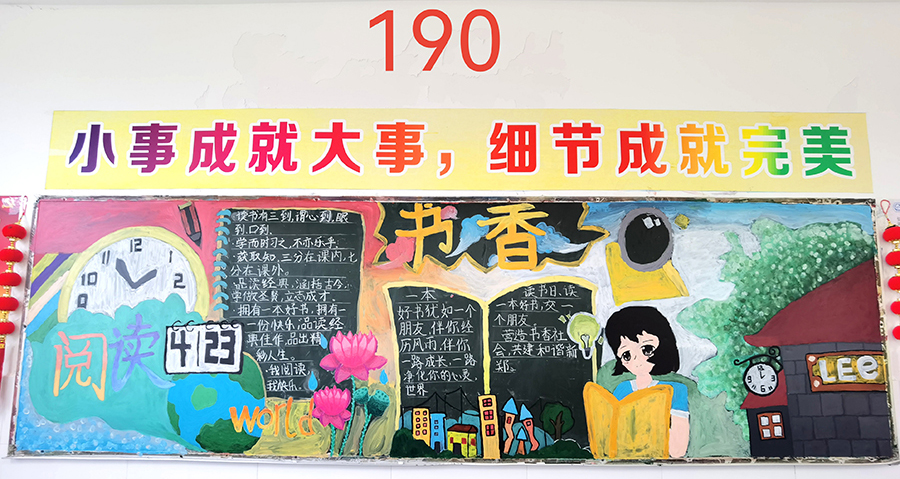 190
小事成就大事，细节成就完美
书香
阅读
4 23
world
读书有三到，谓心到，眼
到，口到.
学而时习之，不亦乐乎.
获取知，三分在课内，七
分在课外。
品读经典，涵括古今.
拥有一本好书，拥有
一份快乐，品读经
典佳作，品出精
彩人生。
我阅读
我快乐.
一本
好书犹如一个
朋友，伴你经
历风雨，伴你
一路成长，一路
净化你的心灵.
世界
读书日，读
一本好书，交一
个朋友.
营造书香社
会，共建和谐新
郑。
12
11
10
9
8
LEe
12
9
3
6